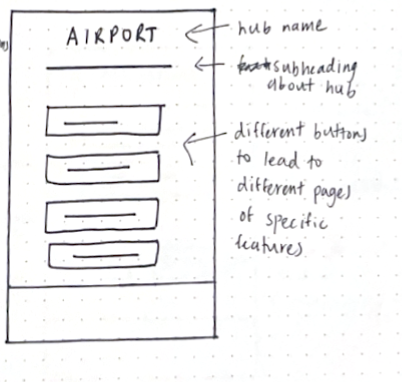 AIRPORT
hub name
subheading
about hub
different buttons
to lead to
different pages
of specific
features